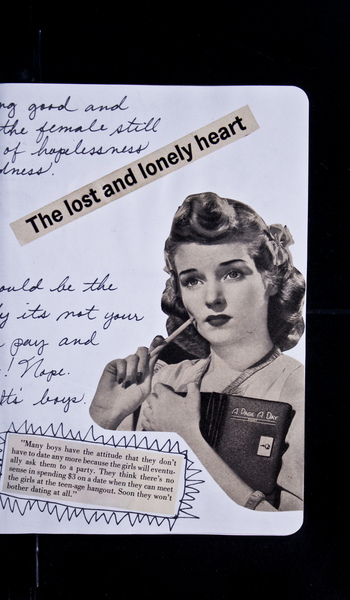 ng good and
the female still
of hopelessness
dness.
The lost and lonely heart
ould be the
y it's not your
pay and
! Nope.
It's boys.
A PAGE A DAY
"Many boys have the attitude that they don't
have to date any more because the girls will eventu-
ally ask them to a party. They think there's no
sense in spending $3 on a date when they can meet
the girls at the teen-age hangout. Soon they won't
bother dating at all."